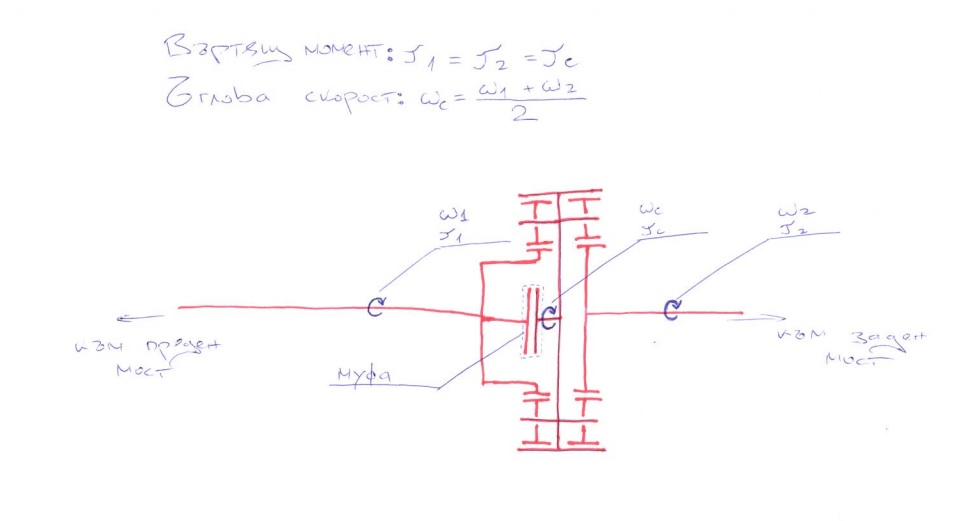 Въртящ момент: T1 = T2 = Tc
Ъглова скорост: ωc = (ω1 + ω2) / 2
ω1
T1
ωc
Tc
ω2
T2
към преден
мост
муфа
към заден
мост